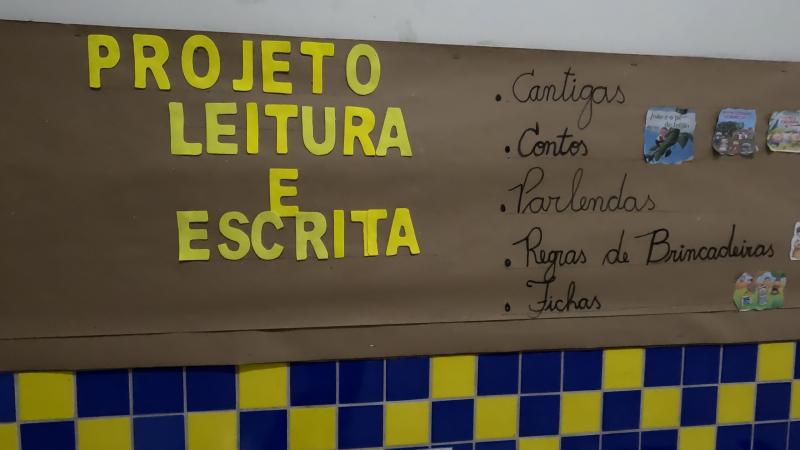 PROJETO
LEITURA
E
ESCRITA
. Cantigas
. Contos
. Parlendas
. Regras de Brincadeiras
. Fichas